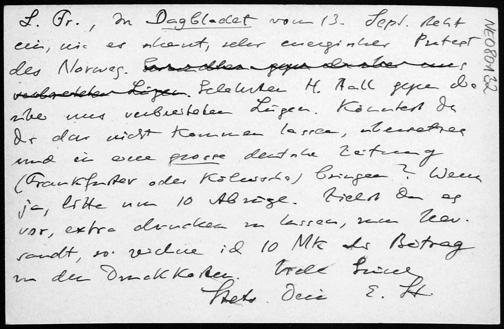 L. Fr., In Dagbladet vom 13. Sept. steht
ein, wie es scheint, sehr energischer Protest
des Norweg.
verbreiteten Lügen. Gelehrten H. Aall gegen die
über uns verbreiteten Lügen. Könntest Du
Dir das nicht kommen lassen, übersetzen
und in eine grosse deutsche Zeitung
(Frankfurter oder Kölnische) bringen? Wenn
ja, bitte um 10 Abzüge. Ziehst Du es
vor, extra drucken zu lassen, zum Ver-
sandt, so zeichne ich 10 Mk als Beitrag
zu den Druckkosten. Viele Grüsse
Stets Dein E. St.
NE080132